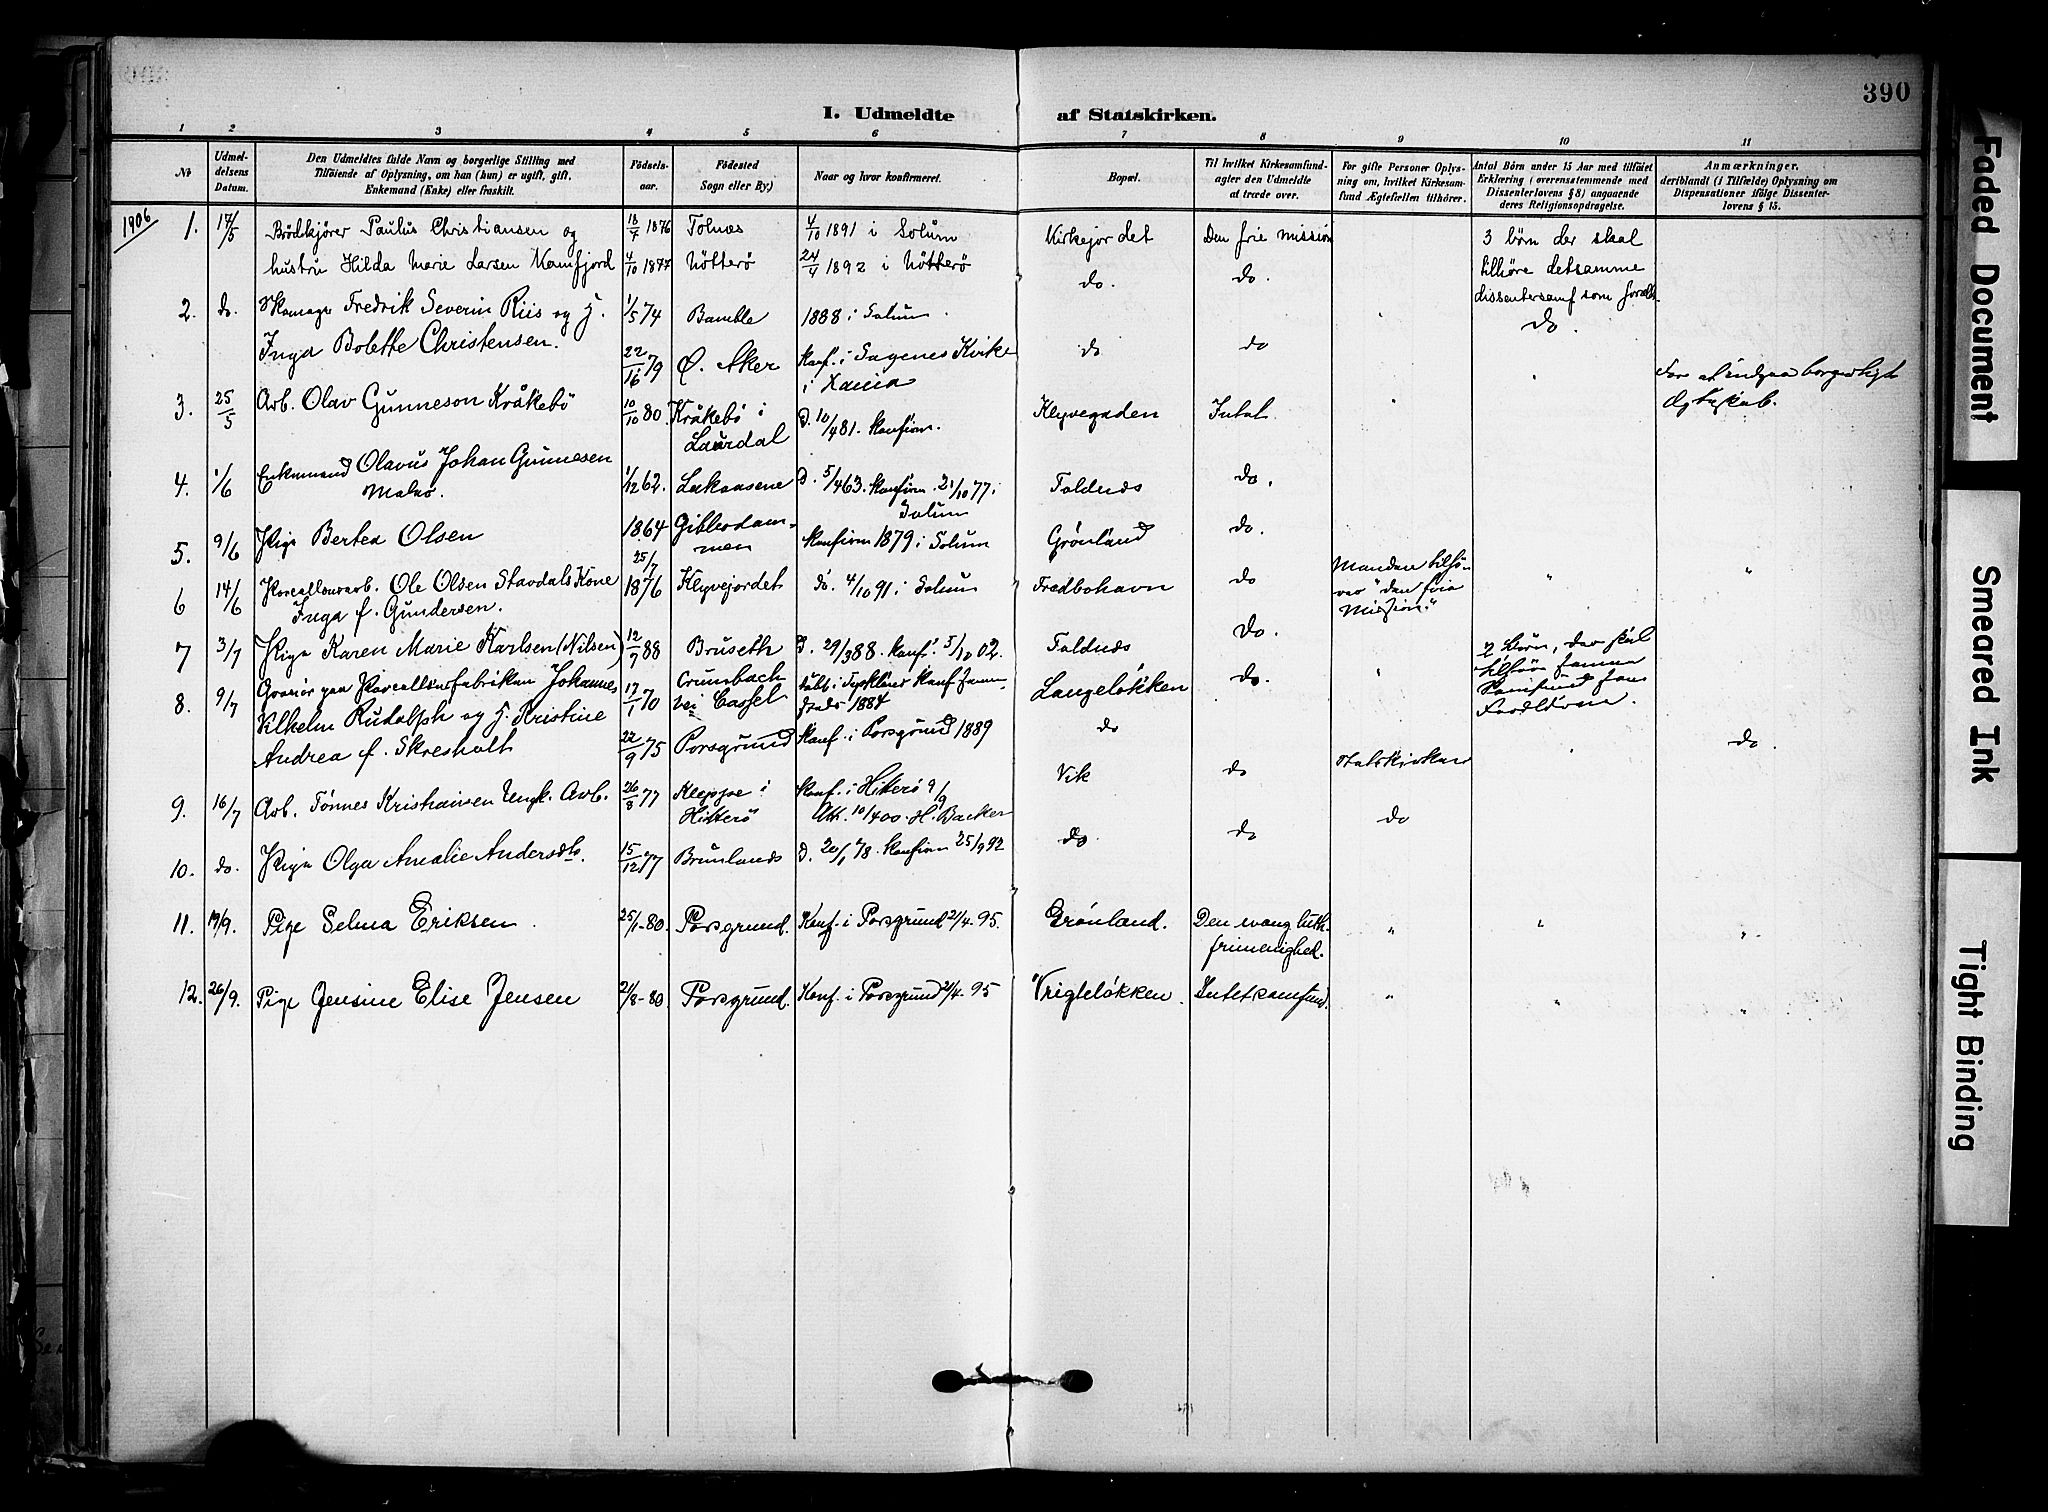 390
I. Udmeldte af Statskirken.
1 2 3 4 5 6 7 8 9 10 11
№
Udmel-
delsens
Datum.
Den Udmeldtes fulde Navn og borgerlige Stilling med
Tilføiende af Oplysning, om han (hun) er ugift, gift,
Enkemand (Enke) eller fraskilt.
Fødsels-
aar.
Fødested
Sogn eller By)
Naar og hvor konfirmeret.
Bopæl.
Til hvilket Kirkesamfund-
agter den Udmeldte
at træde over.
For gifte Personer Oplys-
ning om, hvilket Kirkesam-
fund Ægtefællen tilhører.
Antal Børn under 15 Aar med tilføiet
Erklæring (overensstemmende med
Dissenterlovens §8) angaaende
deres Religionsopdragelse.
Anmærkninger,
deriblandt (i Tilfælde) Oplysning om
Dispensationer ifølge Dissenter-
lovens § 15.
1906
1. 17/5 Brödkjörer Paulus Christiansen og 18/7 1876 Tolnæs 4/10 1891 i Solum Kirkejordet Den frie mission 3 börn der skal
hustru Hilda Marie Larsen Kamfjord 4/10 1877 Nötterö 24/4 1892 i Nötterö do. do. tilhöre detsamme
dissentersamf som foræld.
2. do. Skomager Fredrik Severin Riis og h. 1/5 74 Bamble 1888 i Solum do.
Inga Bolette Christensen. 22/16 79 Ø. Aker Konf. i Sagenes Kirke do do
i Xania
3. 25/5 Arb. Olav Gunneson Kråkebö 10/10 80 Kråkebö i D. 10/4 81. Konfirm. Klyvegaden Intet For at indgaa borgerligt
Laurdal Ægteskab.
4. 1/6 Enkemand Olavus Johan Gunnesen 1/12 62. D. 5/4 63. Konfirm. 21/10 77 i Toldnæs do.
Solum
5. 9/6 Pige Bertea Olsen 1864 Konfirm 1879 i Solum Grønland do.
25/7
6 14/6 Porcellænsarb. Ole Olsen Stavdals Kone 1876 Klyvejordet do. 4/10 91 i Solum Fredbohavn do Manden tilhö-
Inga f. Gundersen. rer "den frie
Mission."
7 3/7 Pige Karen Marie Karlsen (Nilsen) 12/9 88 Bruseth D. 29/3 88. Konf. 5/10 02. Toldnæs do.
8. 9/7 Gravør paa Porcellænsfabriken Johannes 17/1 70 Crumbach döbt i Tyskland Konf. Langeløkken do. 2 Börn, der skal
Vilhelm Rudolph og h. Kristine bei Cassel 1884 tilhöre samme
Andrea f. Skresholt 22/9 75 Porsgrund Konf. i Porsgrund 1889 do Samfund som
Forældrene.
9. 16/7 Arb. Tönnes Kristiansen Ungk. Arb. 26/8 77 Kleppe i Konf. i Hitterö 9/9 Vik do Statskirken do.
Hitterö Att. 10/4 00. H. Backer
10. do. Pige Olga Amalie Andersdtr. 15/12 77 Brunlands D. 20/1 78. Konfirm 25/9 92 do. do do
11. 19/9. Pige Selma Eriksen 25/1-80. Porsgrund. Konf. i Porsgrund 2/4. 95. Grönland. Den evang luth.
frimenighed.
12. 26/9. Pige Jensine Elise Jensen 21/8-80 Porsgrund. Konf. i Porsgrund 2/4. 95 Vrigtelökken. Intet samfund.
Faded Document
Smeared Ink
Tight Binding